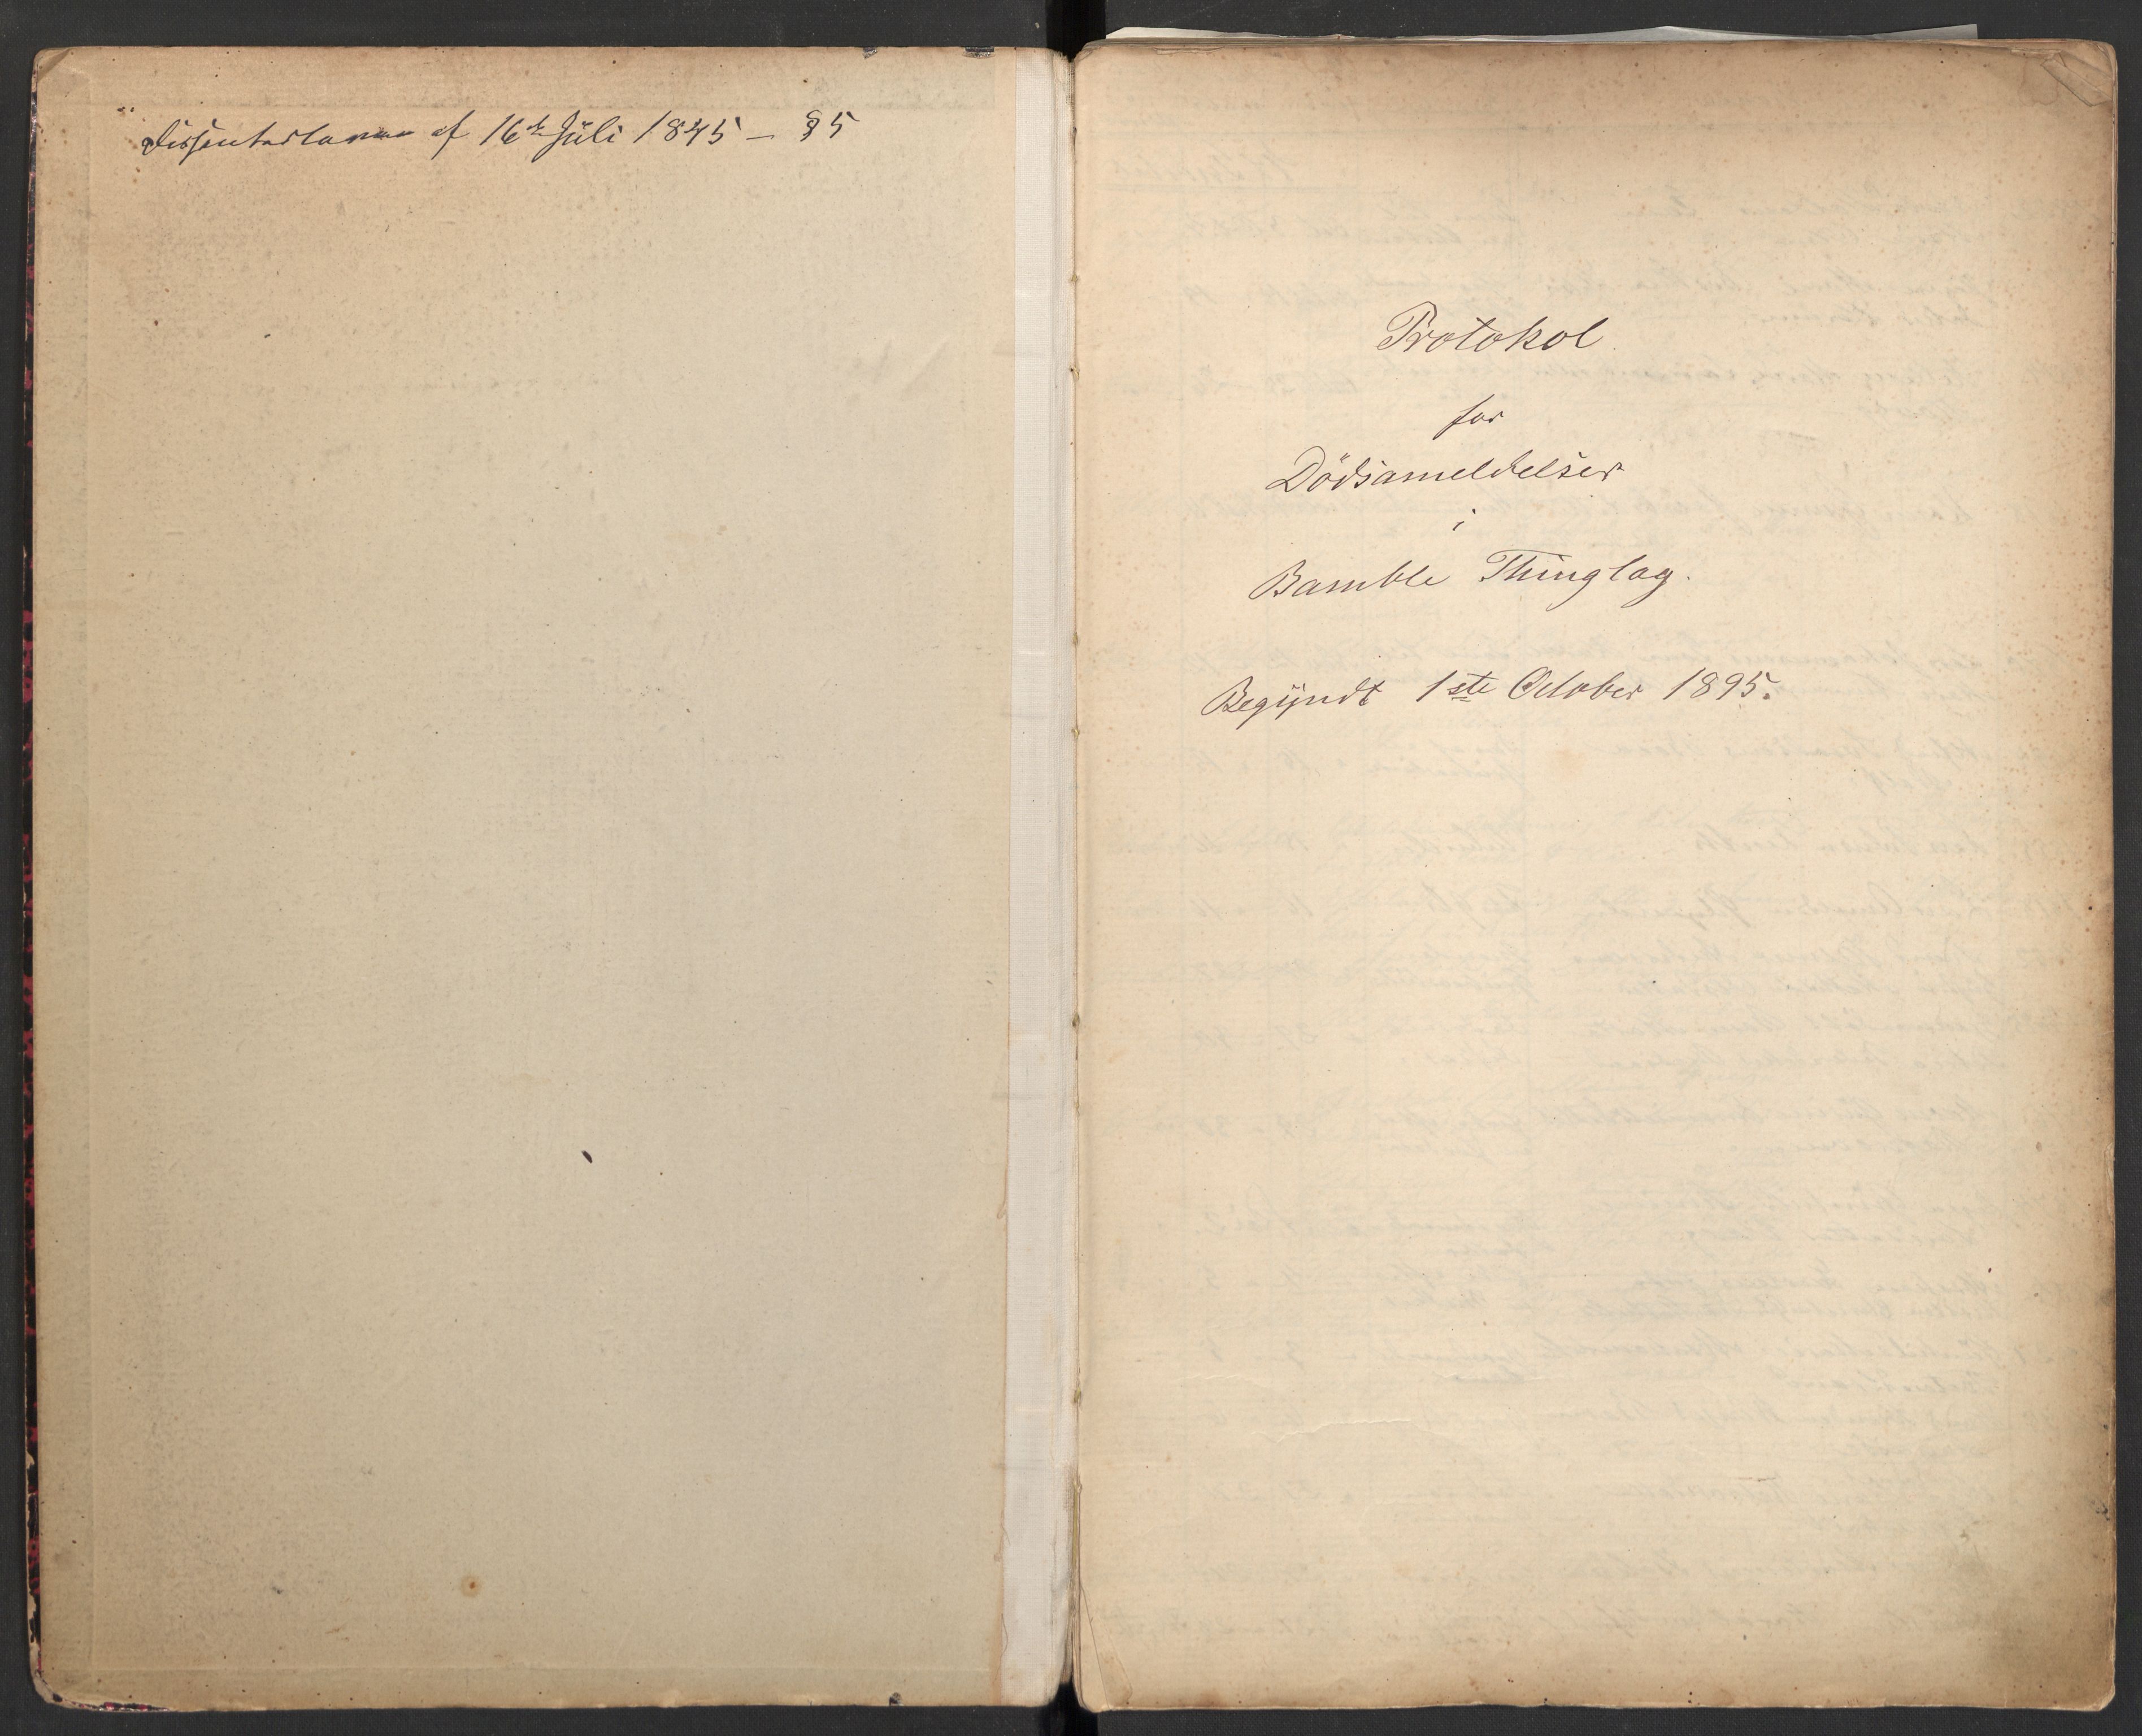 Dissenterloven af 16de Juli 1845 – § 5
Protokol
for
Dödsameldelser
i
Bamble Thinglag.
Begÿndt 1ste October 1895.